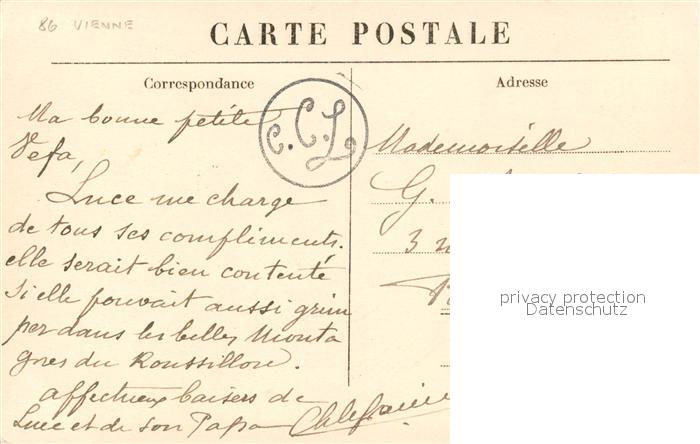 86 VIENNE
CARTE POSTALE
Correspondance
Adresse
C.C.L.
Ma bonne petite
Vefa,
Luce me charge
de tous ses compliments.
elle serait bien contente
si elle pouvait aussi grim
per dans les belles monta
gnes du Roussillon.
affectueux baisers de
Luce et de son Papa
Mademoiselle
G.
3
privacy protection
Datenschutz